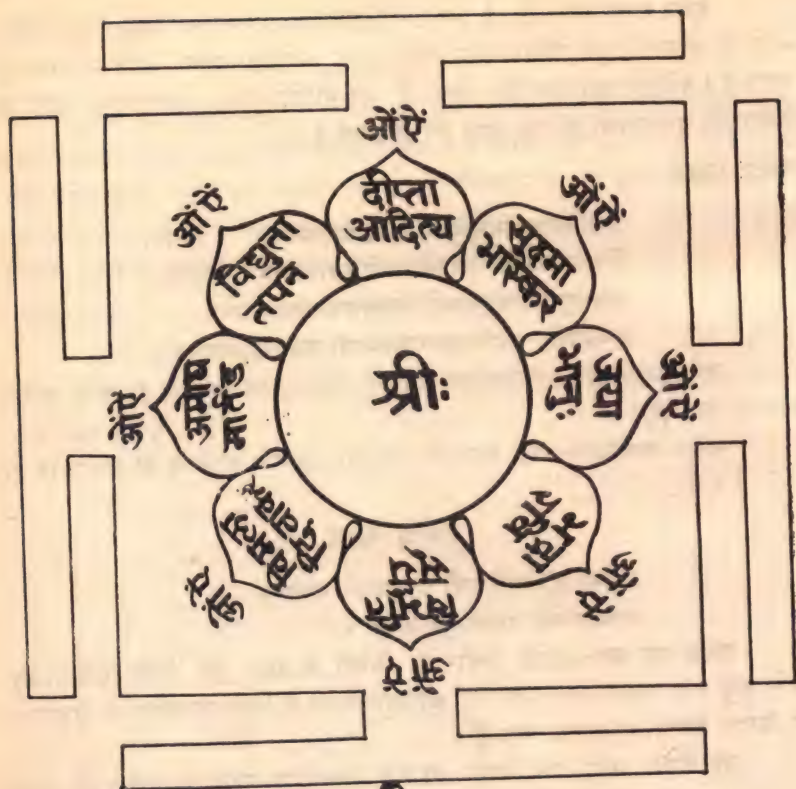 ओं ऐं
दीप्ता
आदित्य
ओं ऐं
सुक्ष्मा
भास्कर
ओं ऐं
जया
भानुः
ओं ऐं
भद्रा
रवि
ओं ऐं
विभूति
ओं ऐं
विमला
दिवाकर
ओं ऐं
अमोघ
मार्तंड
ओं ऐं
विद्युता
तपन